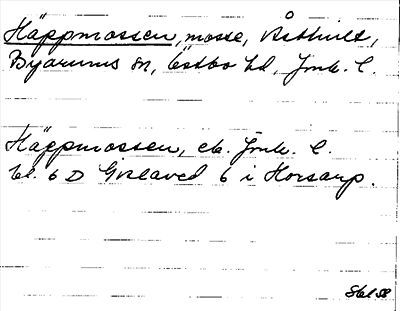 Häppmossen, mosse, Åsthult,
Byarums sn, Östbo hd, Jönk. l.
Häppmossen, ek. Jönk. l.
bl. 6 D Gislaved 6 i Horsarp.